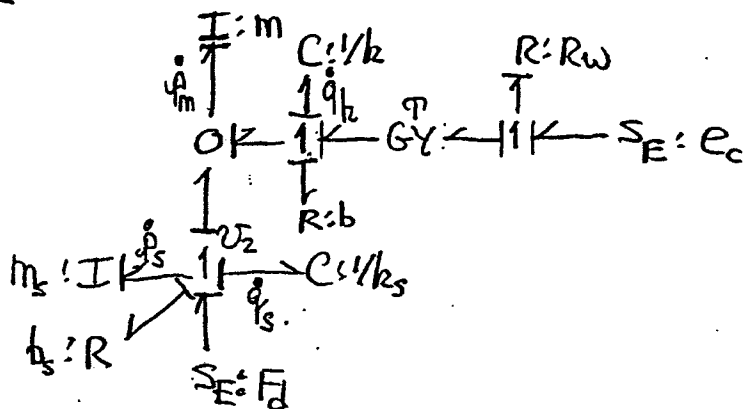 I:m
C:1/k
R:Rw
ṗm
q̇k
T
0
1
GY
1
SE:ec
R:b
v2
ms:I
ṗs
1
C:1/ks
q̇s.
bs:R
SE:Fd